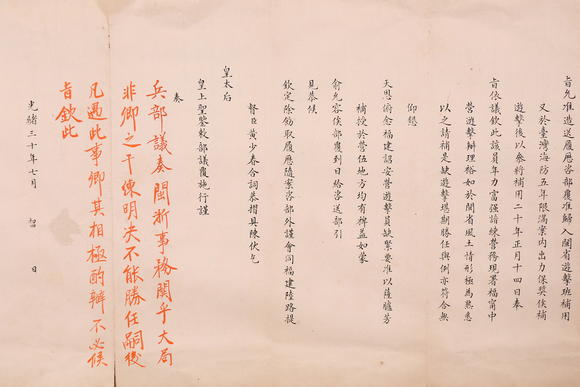 旨允准造送履歷咨部覆准歸入閩省遊擊班補用
又於臺灣海防五年限滿案內出力保奬俟補
遊擊後以參將補用二十年正月十四日奉
旨依議欽此該員年力富強請練營務現署福甯中
營遊擊辦理裕如於閩省風土情形極為熟悉
以之請補是缺遊擊堪期勝任與例亦符合無
仰懇
天恩俯念福建詔安營遊擊員缺緊要准以薩臚芳
補授於營伍地方均有裨益如蒙
俞允容俟部覆到日給咨送部引
見恭候
欽定除飭取履歷隨案咨部外謹會同福建陸路提
督臣黃少春合詞恭摺具陳伏乞
皇太后
皇上聖鑒敕部議覆施行謹
奏
兵部議奏閩浙事務關乎大局
非卿之干練明決不能勝任嗣後
凡遇此事卿其相極酌辦不必候
旨欽此
光緒三十年七月 初 日